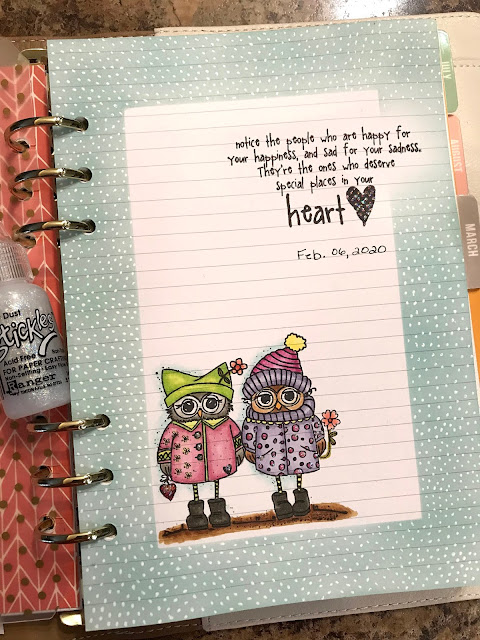 notice the people who are happy for
your happiness, and sad for your sadness.
They're the ones who deserve
special places in your
heart
Feb. 06, 2020
JULY
AUGUST
MARCH
Dust
Stickles
Acid Free
FOR PAPER CRAFTING
Ranger